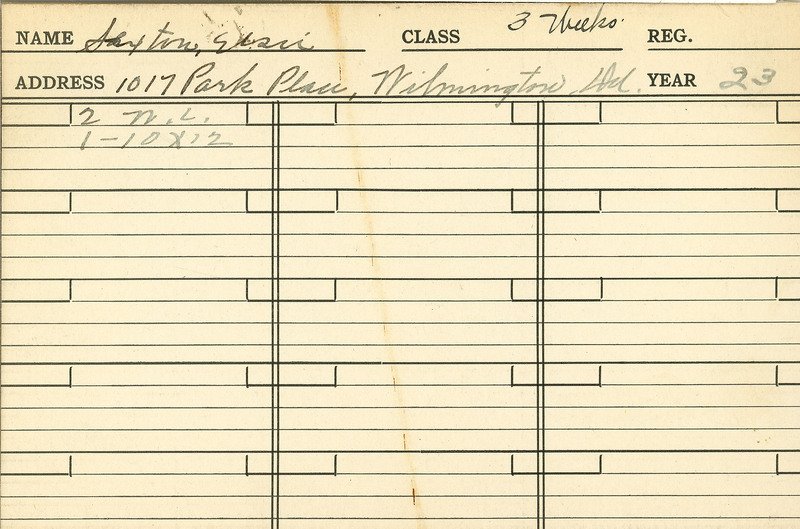 NAME Saxton, Elsie CLASS 3 Weeks. REG.
ADDRESS 1017 Park Place, Wilmington, Del. YEAR 23
2 W.C.
1-10X12